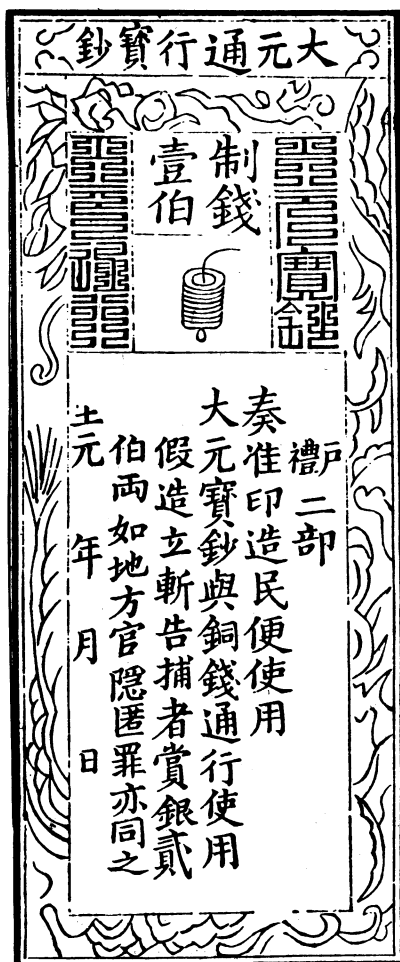 大元通行寶鈔
制錢
壹伯
戶禮二部
奏准印造民便使用
大元寶鈔與銅錢通行使用
假造立斬告捕者賞銀貳
伯両如地方官隠匿罪亦同之
至元 年 月 日